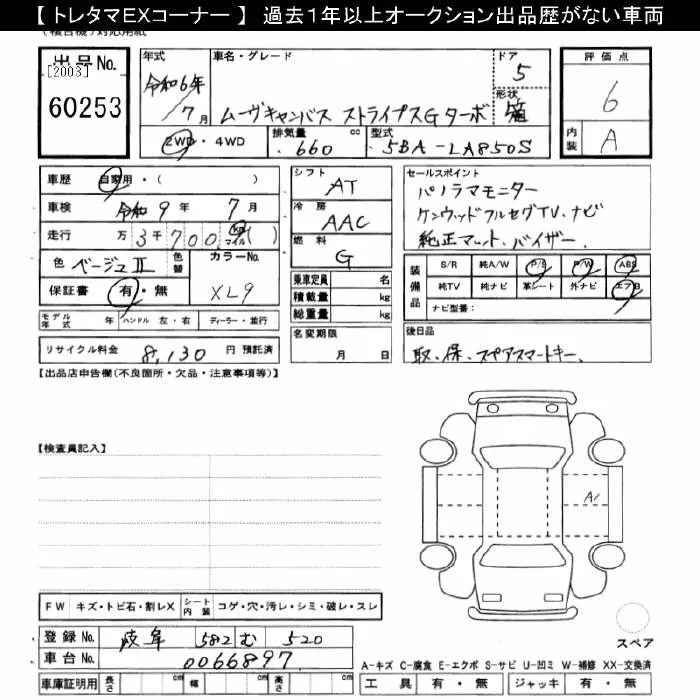 【 トレタマEXコーナー 】 過去1年以上オークション出品歴がない車両
出品No.
[2003]
60253
年式
令和6年
7月
車名・グレード
ムーヴキャンバス ストライプスGターボ
ドア
5
形状
箱
2WD・4WD
排気量 660 cc
型式 5BA-LA850S
評価点
6
内装
A
車歴 自家用・( )
車検 令和 9年 7月
走行 万 3千700 km マイル ( )
色 ベージュII 色替
カラーNo.
XL9
保証書 有・無
モデル年式 年 ハンドル 左・右 ディーラー・並行
リサイクル料金 8,130 円 預託済
シフト
AT
冷房
AAC
燃料
G
乗車定員 名
積載量 kg
総重量 kg
名変期限
月 日
セールスポイント
パノラマモニター
ケンウッドフルセグTV、ナビ
純正マット、バイザー、
装備品
S/R 純A/W P/S P/W ABS
純TV 純ナビ 革シート 外ナビ エアB
ナビ型番:
後日品
取、保、スペアスマートキー、
【出品店申告欄(不良箇所・欠品・注意事項等)】
【検査員記入】
A1
FW キズ・トビ石・割レX シート内装 コゲ・穴・汚レ・シミ・破レ・スレ
登録No. 岐阜 582 む 520
車台No. 0066897
車庫証明用 長さ cm 幅 cm 高さ cm
スペア
A-キズ C-腐食 E-エクボ S-サビ U-凹ミ W-補修 XX-交換済
工具 有・無 ジャッキ 有・無